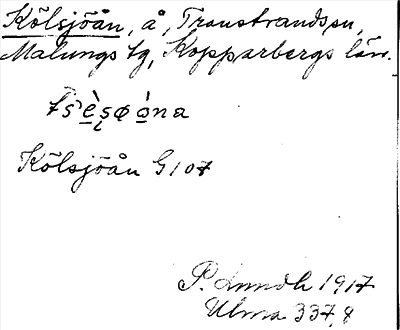 Kölsjöån, å, Transtrands sn,
Malungs tg, Kopparbergs län.
Kölsjöån G107
P. Lundh 1917
Ulma 337,8